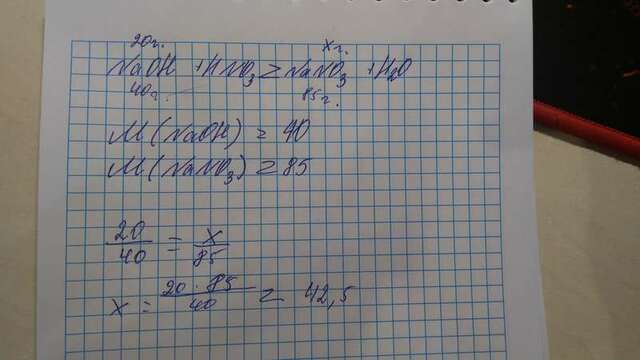 20г. xг.
NaOH + HNO3 = NaNO3 + H2O
40г. 85г.
M (NaOH) = 40
M (NaNO3) = 85
20/40 = x/85
x = 20 · 85/40 = 42,5